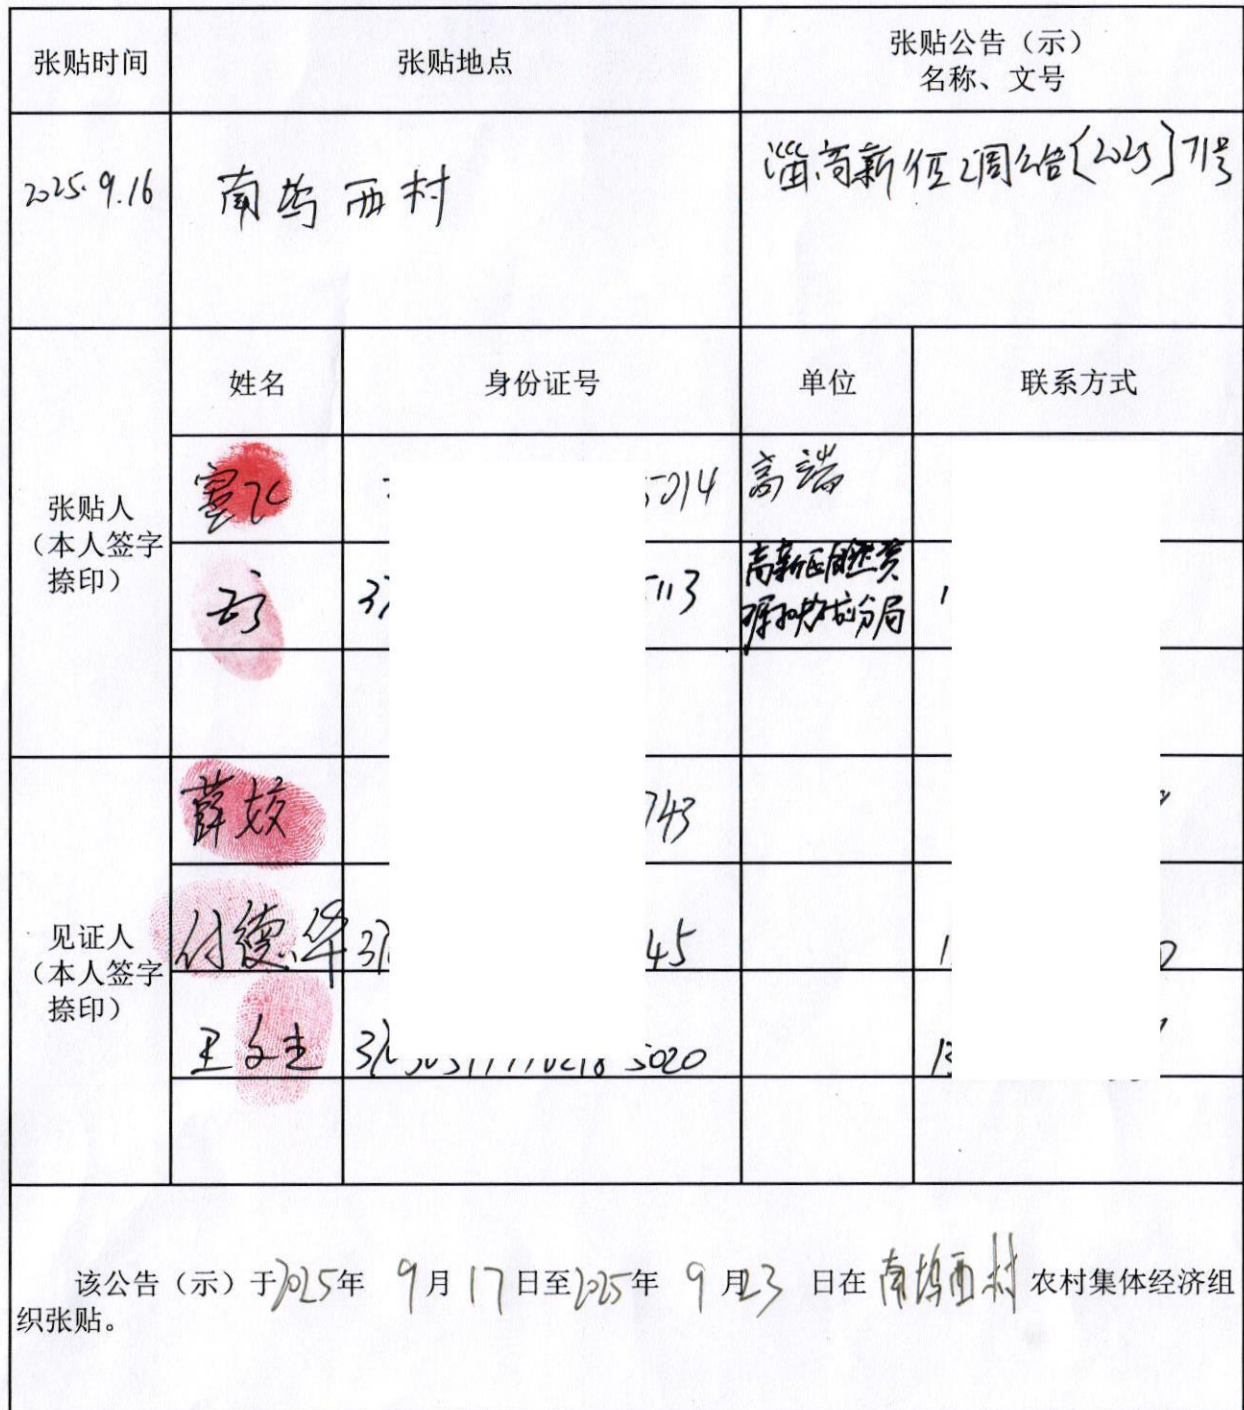 张贴时间
张贴地点
张贴公告（示）
名称、文号
2025.9.16
南坞西村
淄高新征调公告〔2025〕71号
姓名
身份证号
单位
联系方式
张贴人
（本人签字
捺印）
5014
高端
37
5113
高新区自然资
源和规划分局
1
见证人
（本人签字
捺印）
薛姣
743
付德华
37
45
1
王
37
5020
该公告（示）于2025年 9月17日至2025年 9月23日在 南坞西村 农村集体经济组
织张贴。